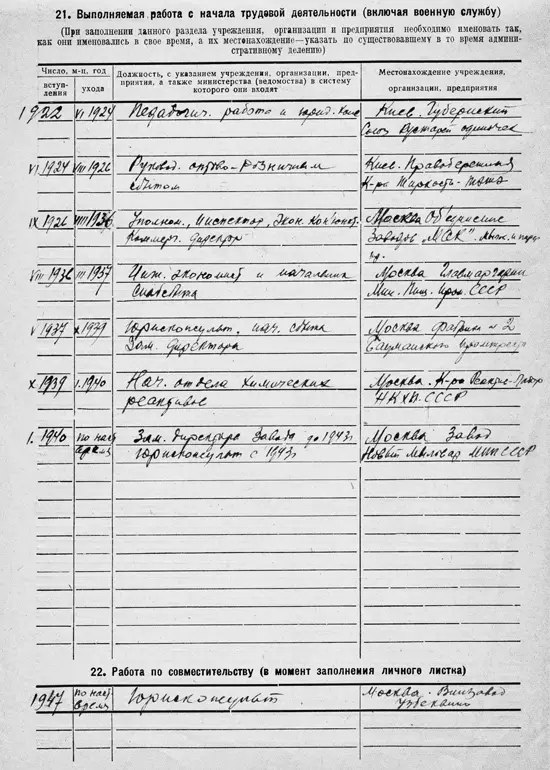 21. Выполняемая работа с начала трудовой деятельности (включая военную службу)
(При заполнении данного раздела учреждения, организации и предприятия необходимо именовать так,
как они именовались в свое время, а их местонахождение—указать по существовавшему в то время админи-
стративному делению)
Число, м-ц, год
вступ-
ления
ухода
Должность, с указанием учреждения, организации, пред-
приятия, а также министерства (ведомства) в систему
которого они входят
Местонахождение учреждения,
организации, предприятия
1922 VI 1924 Педагогич. работа и юрид. Киев. Губернский
Союз Кустарей одиночек
VI 1924 VIII 1926 Руковод. оптово-розничным Киев. Правобережная
сбытом К-ра
IX 1926 VIII 1936 Уполном., Инспектор, Экон. Москва Объединение
Коммерч. Директор Заводов
VIII 1936 III 1937 Инж. экономист и начальник Москва Главмаргарин
Мин. Пищ. Пром. СССР
V 1937 X 1939 Юрисконсульт, нач. сбыта Москва Фабрик № 2
Зам. Директора Бауманского
X 1939 I. 1940 Нач. отдела химических Москва. К-ра
реактивов НКХП. СССР
I. 1940 по наст Зам. Директора Завода до 1943г Москва Завод
время Юрисконсульт с 1943г Новый Мыловар МПП СССР
22. Работа по совместительству (в момент заполнения личного листка)
1947 по наст Юрисконсульт Москва. Винзавод
время Узбеквино